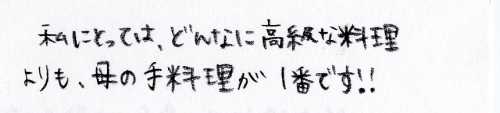 私にとっては、どんなに高級な料理
よりも、母の手料理が1番です!!